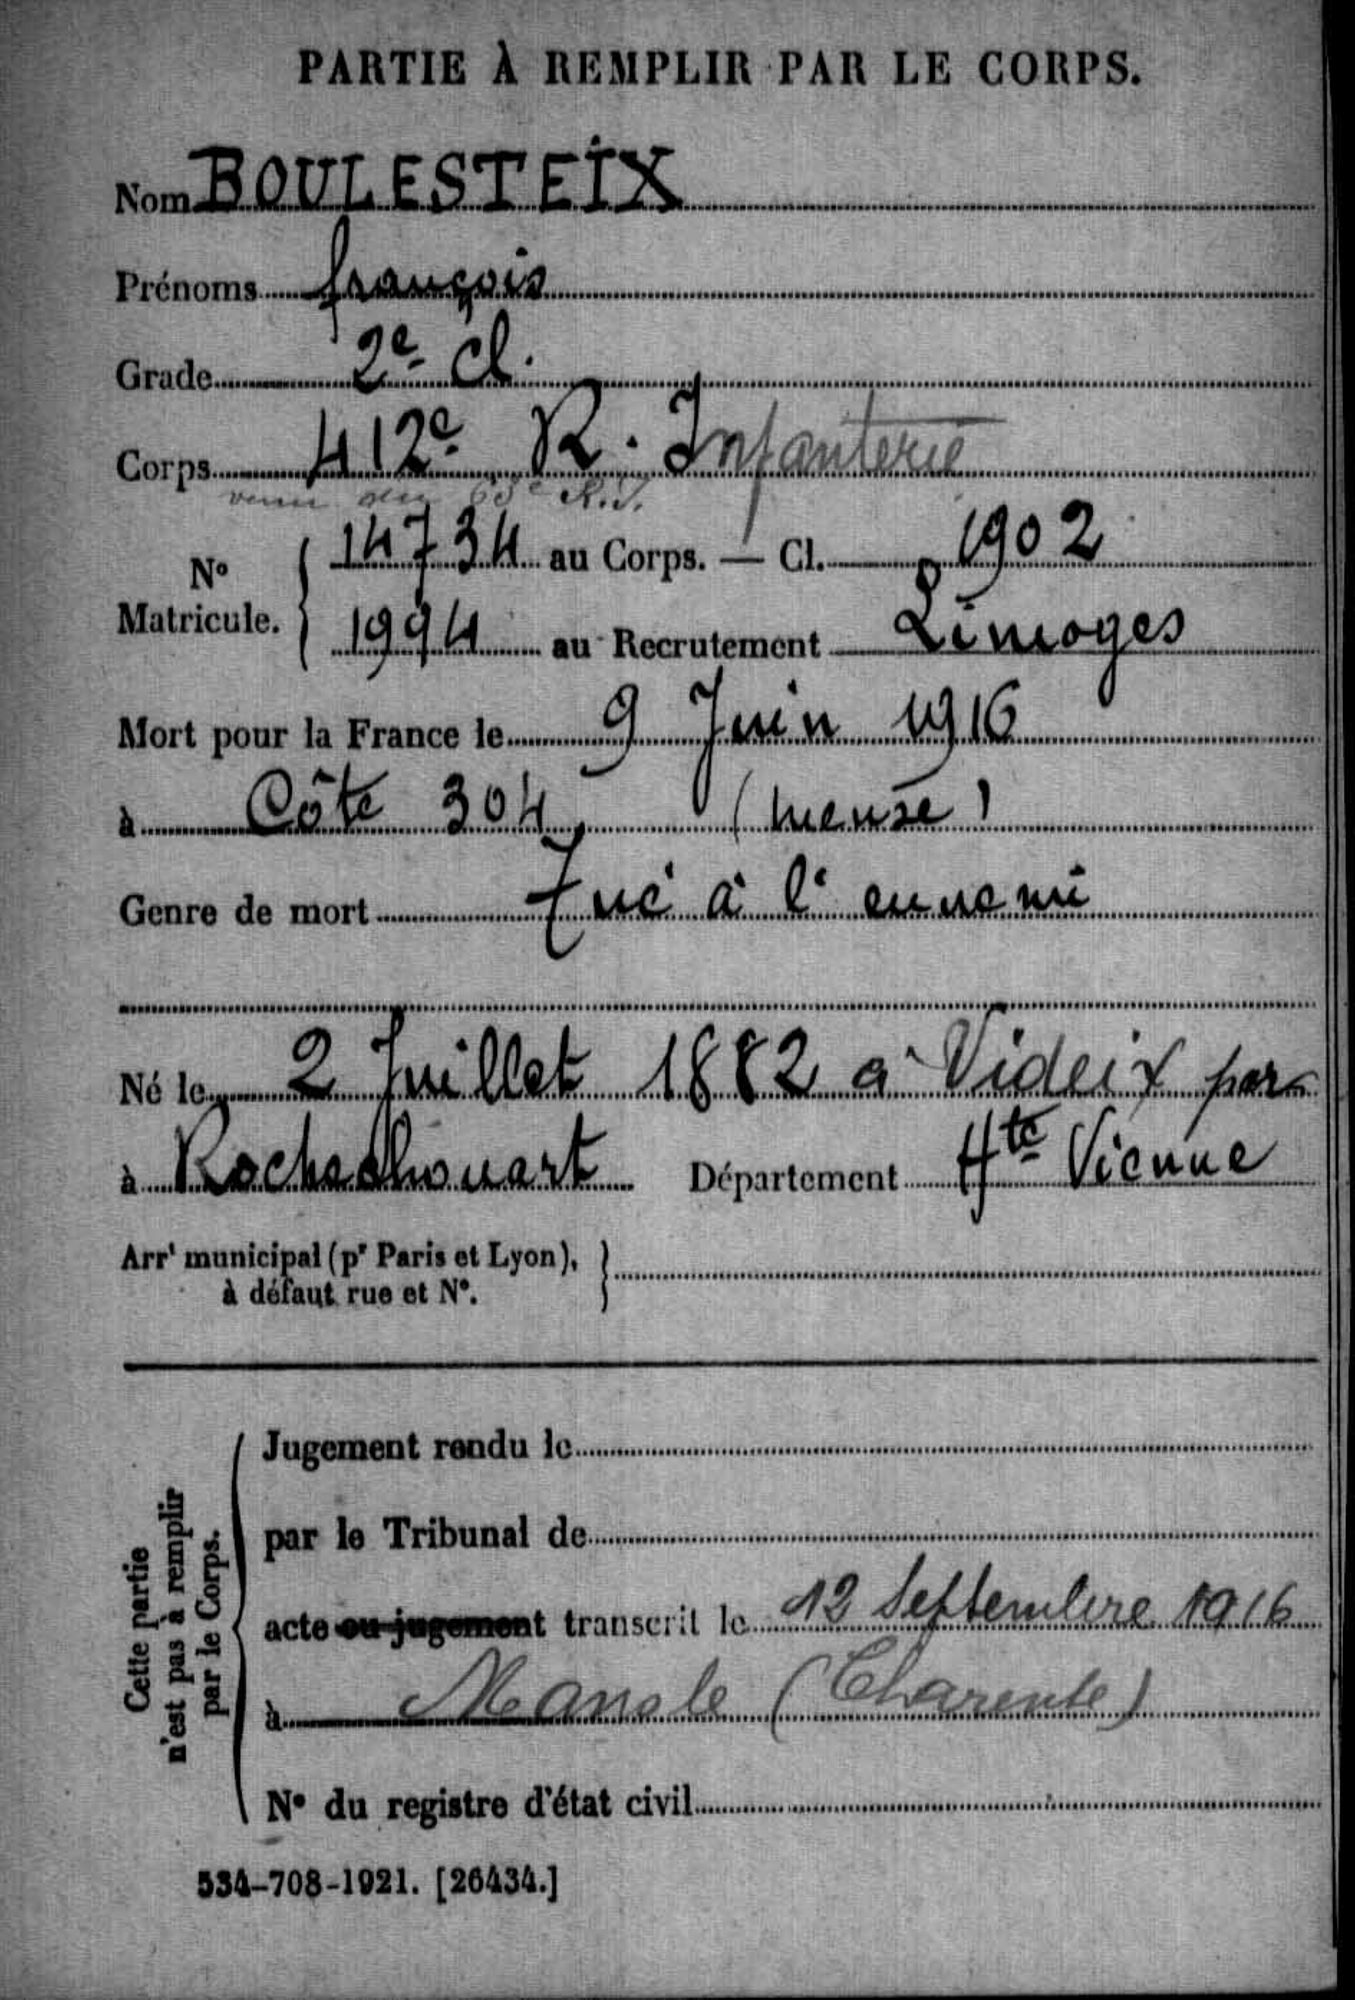 PARTIE À REMPLIR PAR LE CORPS.
Nom BOULESTEIX
Prénoms françois
Grade 2e cl.
Corps 412e R. Infanterie
venu du R.I.
N° Matricule. 14734 au Corps. — Cl. 1902
1994 au Recrutement Limoges
Mort pour la France le 9 Juin 1916
à Côte 304 (meuse)
Genre de mort Tué à l'ennemi
Né le 2 Juillet 1882 à Videix par
à Rochechouart Département Hte Vienne
Arrt municipal (pr Paris et Lyon),
à défaut rue et N°.
Cette partie
n'est pas à remplir
par le Corps.
Jugement rendu le
par le Tribunal de
acte ou jugement transcrit le 12 Septembre 1916
à Mansle (Charente)
N° du registre d'état civil
534-708-1921. [26434.]